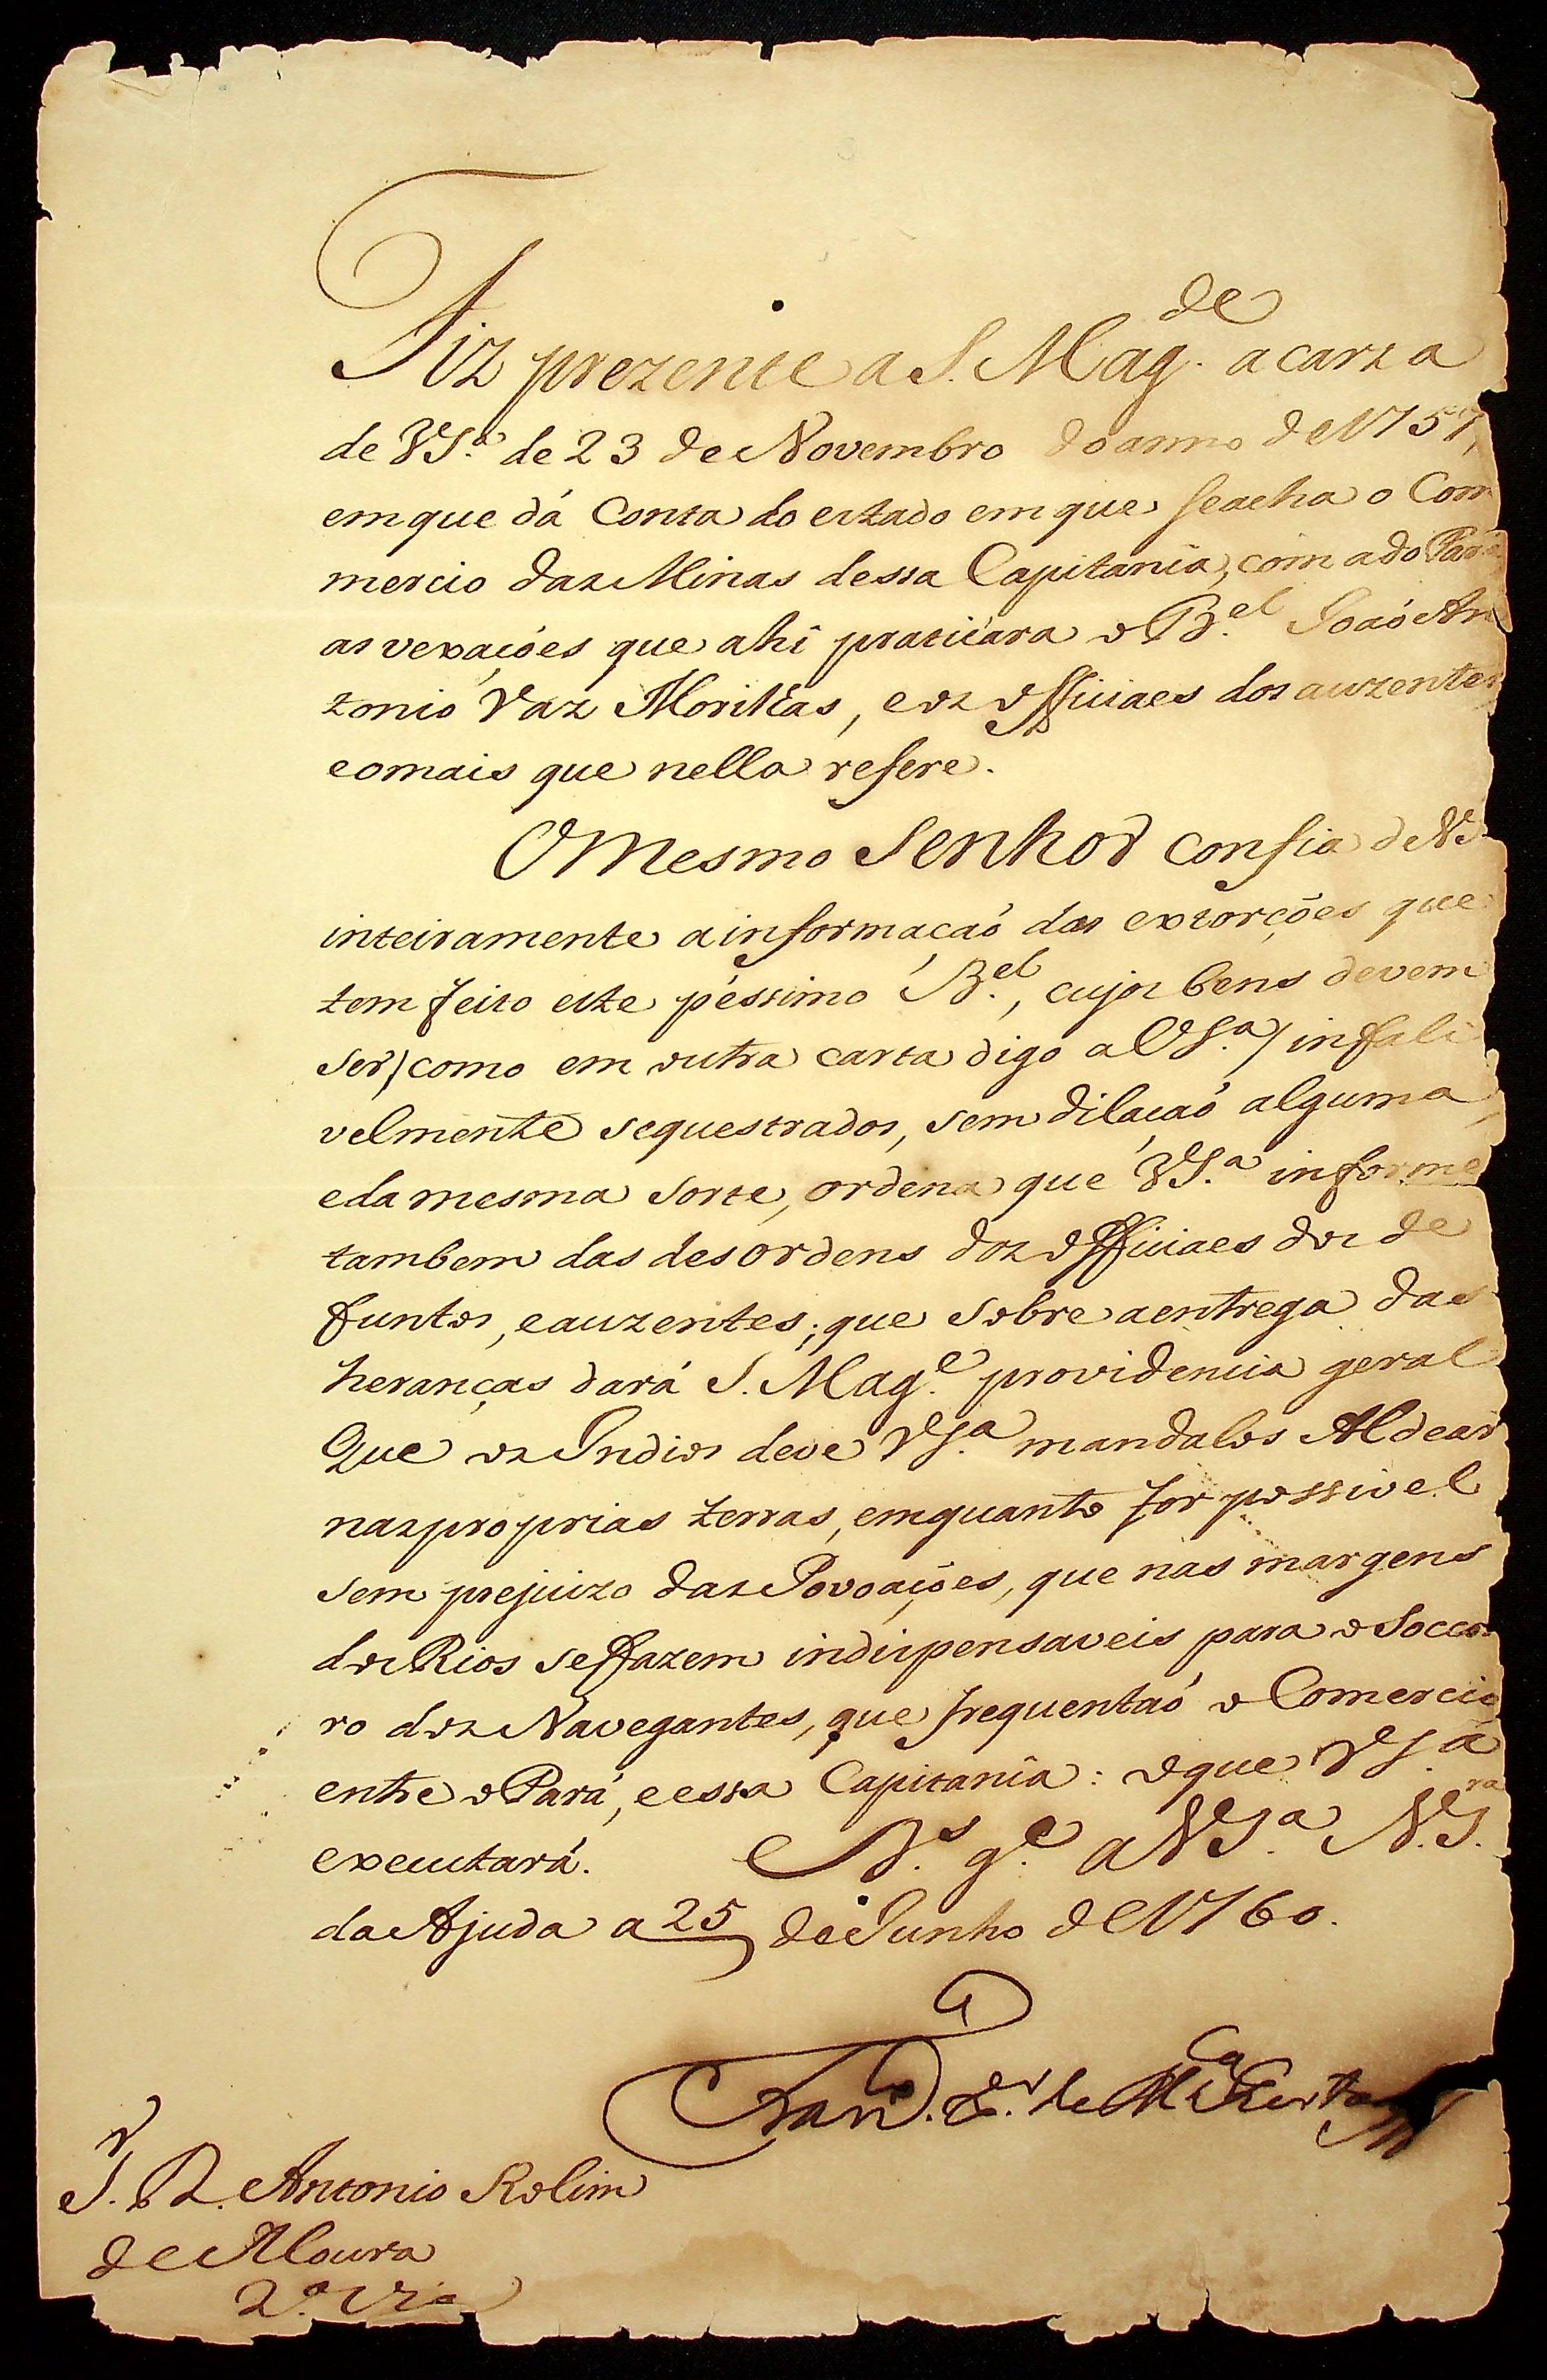 Fiz prezente a S. Mag.de a carta
de VS.a de 23 de Novembro do anno de 1757,
em que dá Conta do estado em que se acha o Com
mercio das Minas dessa Capitania, com a do Pará
as vexações que ahi praticara o B.el João An
tonio Vaz Morilhas, e os officiaes dos auzentes
e o mais que nella refere.
O Mesmo Senhor confia de VS
inteiramente a informação das extorções que
tem feito este péssimo B.el, cujos bens devem
ser (como em outra carta digo a VS.a) infali
velmente sequestrados, sem dilação alguma,
e da mesma sorte, ordena que VS.a informe
tambem das desordens dos officiaes dos de
funtos, e auzentes; que sobre a entrega das
heranças dará S. Mag.e providencia geral
Que os Indios deve VS.a mandalos Aldear
nas proprias terras, emquanto for possivel
sem prejuizo das Povoações, que nas margens
dos Rios se fazem indispensaveis para o Soccor
ro dos Navegantes, que frequentaó o Comercio
entre o Pará, e essa Capitania: o que VS.a
executará. D.s g.e a VS.a N. S.ra
da Ajuda a 25 de Junho de 1760.
Fran.co X.er de M.ca Furtado
S.r D. Antonio Rolim
de Moura
2.a Via